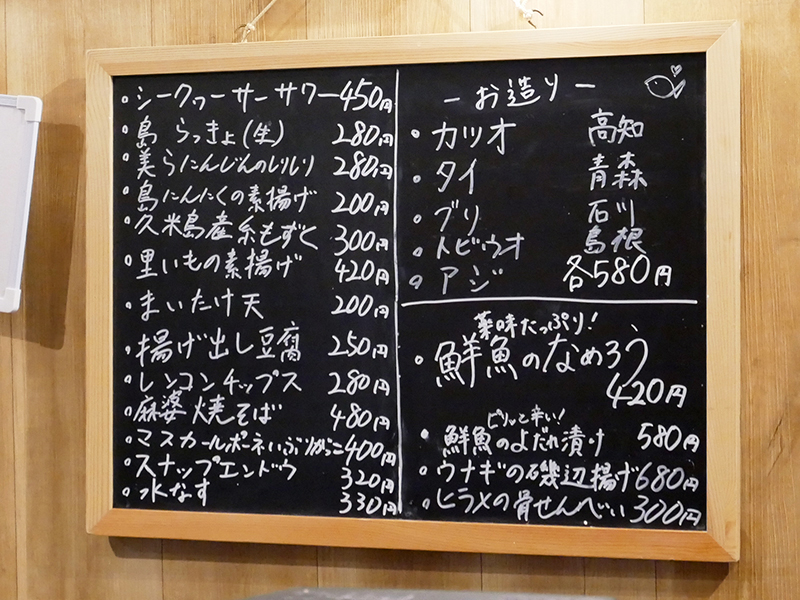 ・シークヮーサーサワー 450円
・島らっきょ(生) 280円
・美らにんじんのしりしり 280円
・島にんにくの素揚げ 200円
・久米島産糸もずく 300円
・里いもの素揚げ 420円
・まいたけ天 200円
・揚げ出し豆腐 250円
・レンコンチップス 280円
・麻婆焼そば 480円
・マスカールポーネいぶりがっこ 400円
・スナップエンドウ 320円
・水なす 330円
ーお造りー
・カツオ 高知
・タイ 青森
・ブリ 石川
・トビウオ 島根
・アジ
各580円
薬味たっぷり!
・鮮魚のなめろう
420円
ピリッと辛い!
・鮮魚のよだれ漬け 580円
・ウナギの磯辺揚げ 680円
・ヒラメの骨せんべい 300円